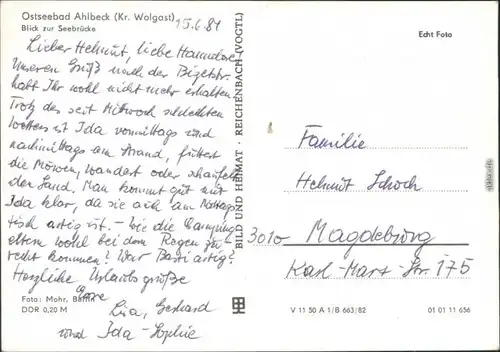 Ostseebad Ahlbeck (Kr. Wolgast)
Blick zur Seebrücke
15.6.81
Lieber Helmut, liebe Hannelore!
Unseren Gruß nach der
habt Ihr wohl nicht mehr erhalten.
Trotz des seit Mittwoch schlechten
Wetters ist Ida vormittags und
nachmittags am Strand, füttert
die Möwen, wandert oder schaufelt
den Sand. Man kommt gut mit
Ida klar, da sie auch am Mittags-
tisch artig ist. – Wie die Camping-
eltern wohl bei dem Regen zu-
recht kommen? War Basti artig?
Herzliche Urlaubsgrüße
Eure
Lisa, Gerhard
und Ida-Sophie
Foto: Mohr, Berlin
DDR 0,20 M
BILD UND HEIMAT · REICHENBACH (VOGTL)
Echt Foto
Familie
Helmut Schoch
3010 Magdeburg
Karl-Marx-Str. 175
V 11 50 A 1/B 663/82
01 01 11 656